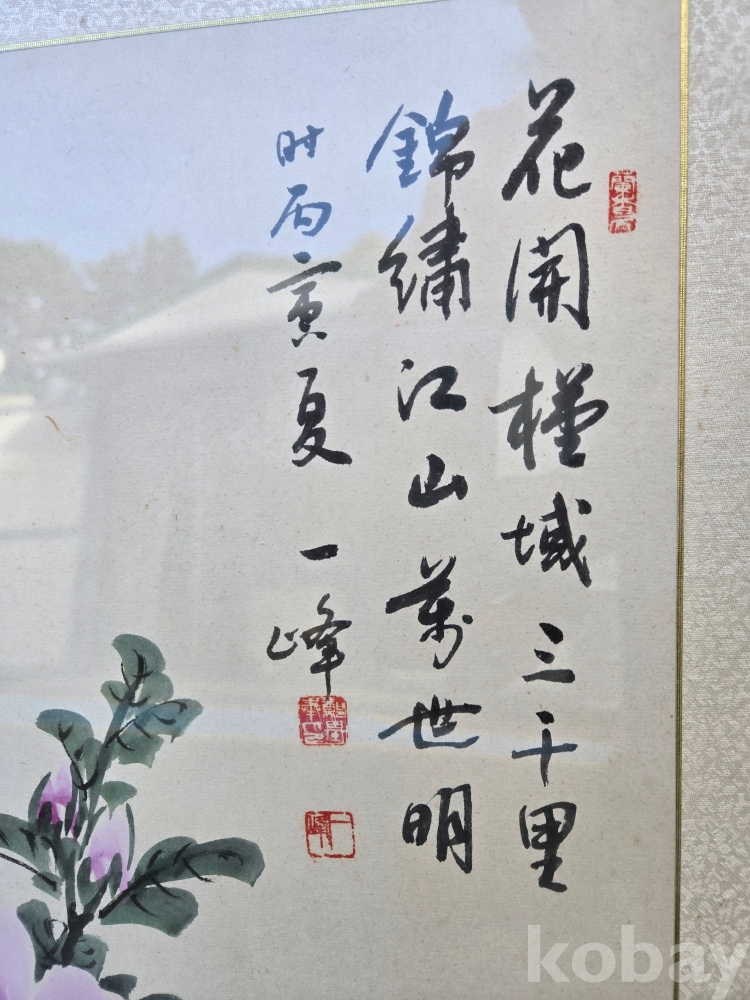 花開槿域三千里
錦繡江山萬世明
时丙寅夏 一峰
一峰
kobay